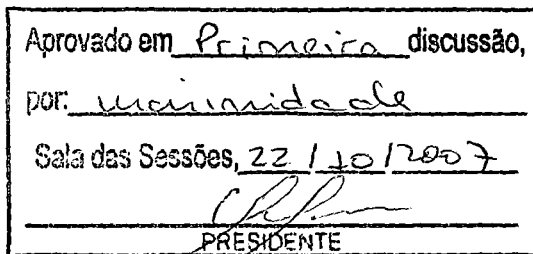 Aprovado em Primeira discussão,
por: unanimidade
Sala das Sessões, 22 / 10 / 2007
PRESIDENTE